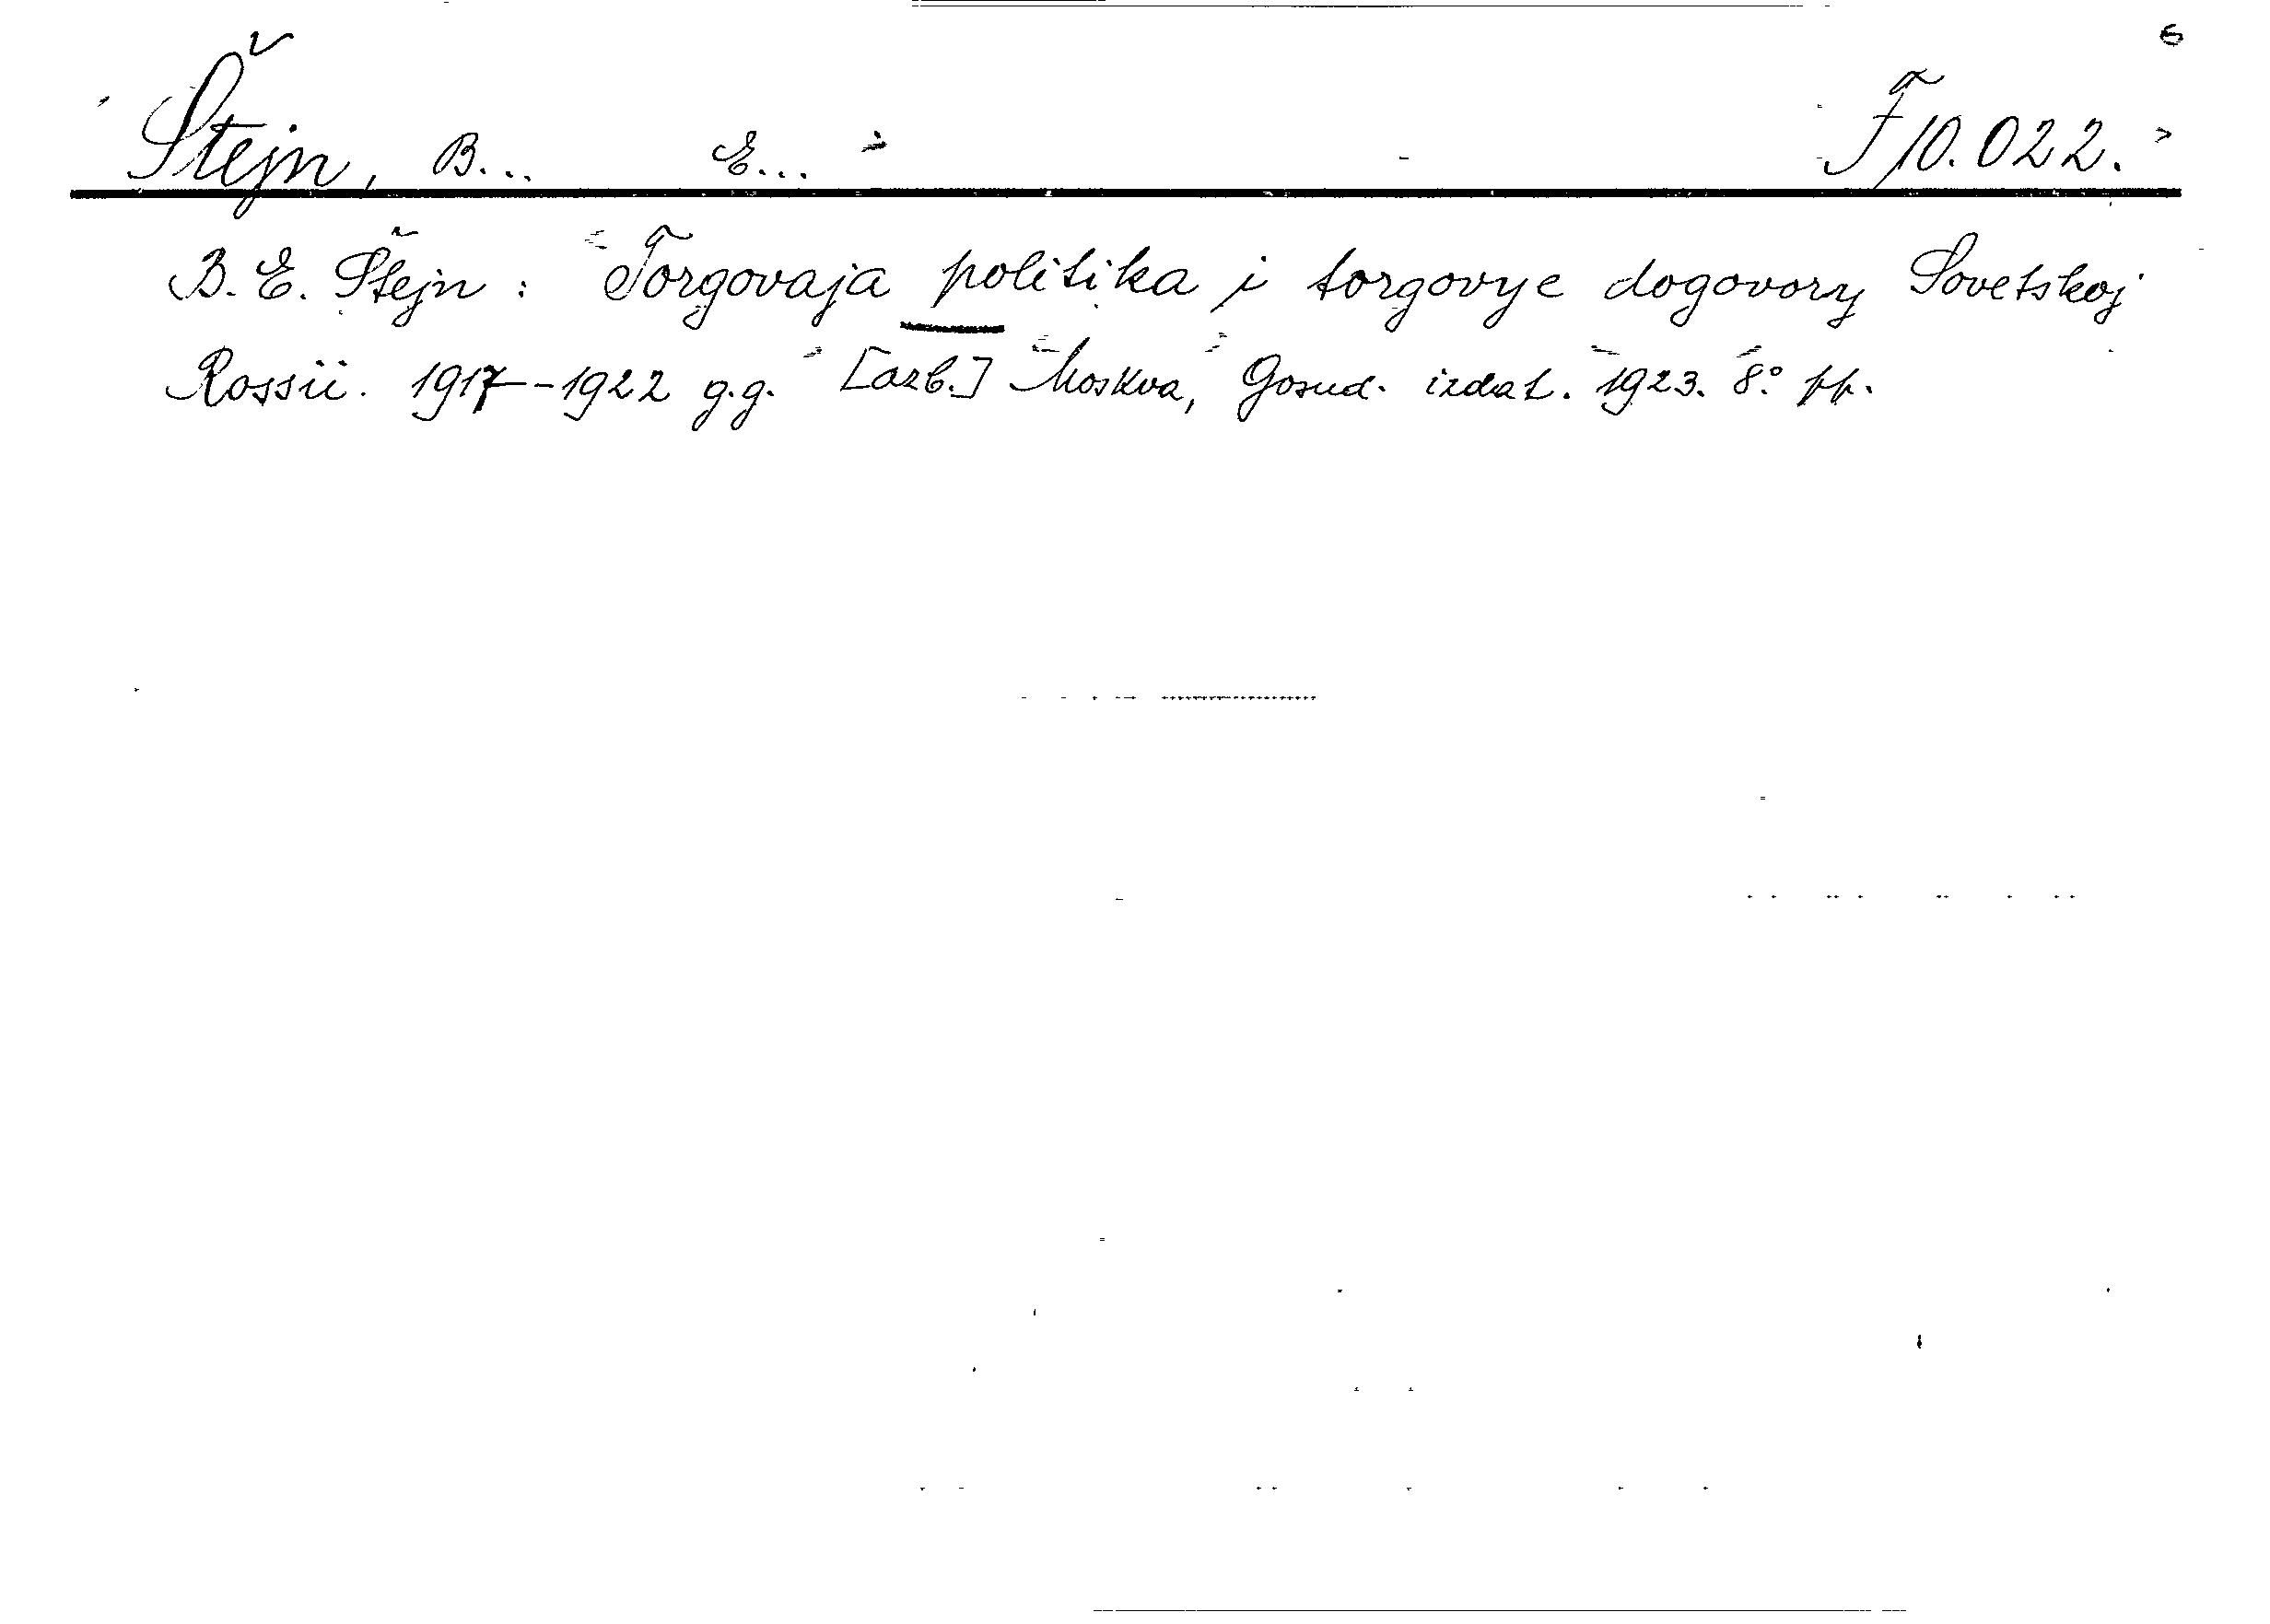 Štejn, B... E... F 10.022.
B. E. Štejn: Torgovaja politika i torgovye dogovory Sovetskoj
Rossii. 1917--1922 g.g. [azb.] Moskva, Gosud. izdat. 1923. 8° pp.